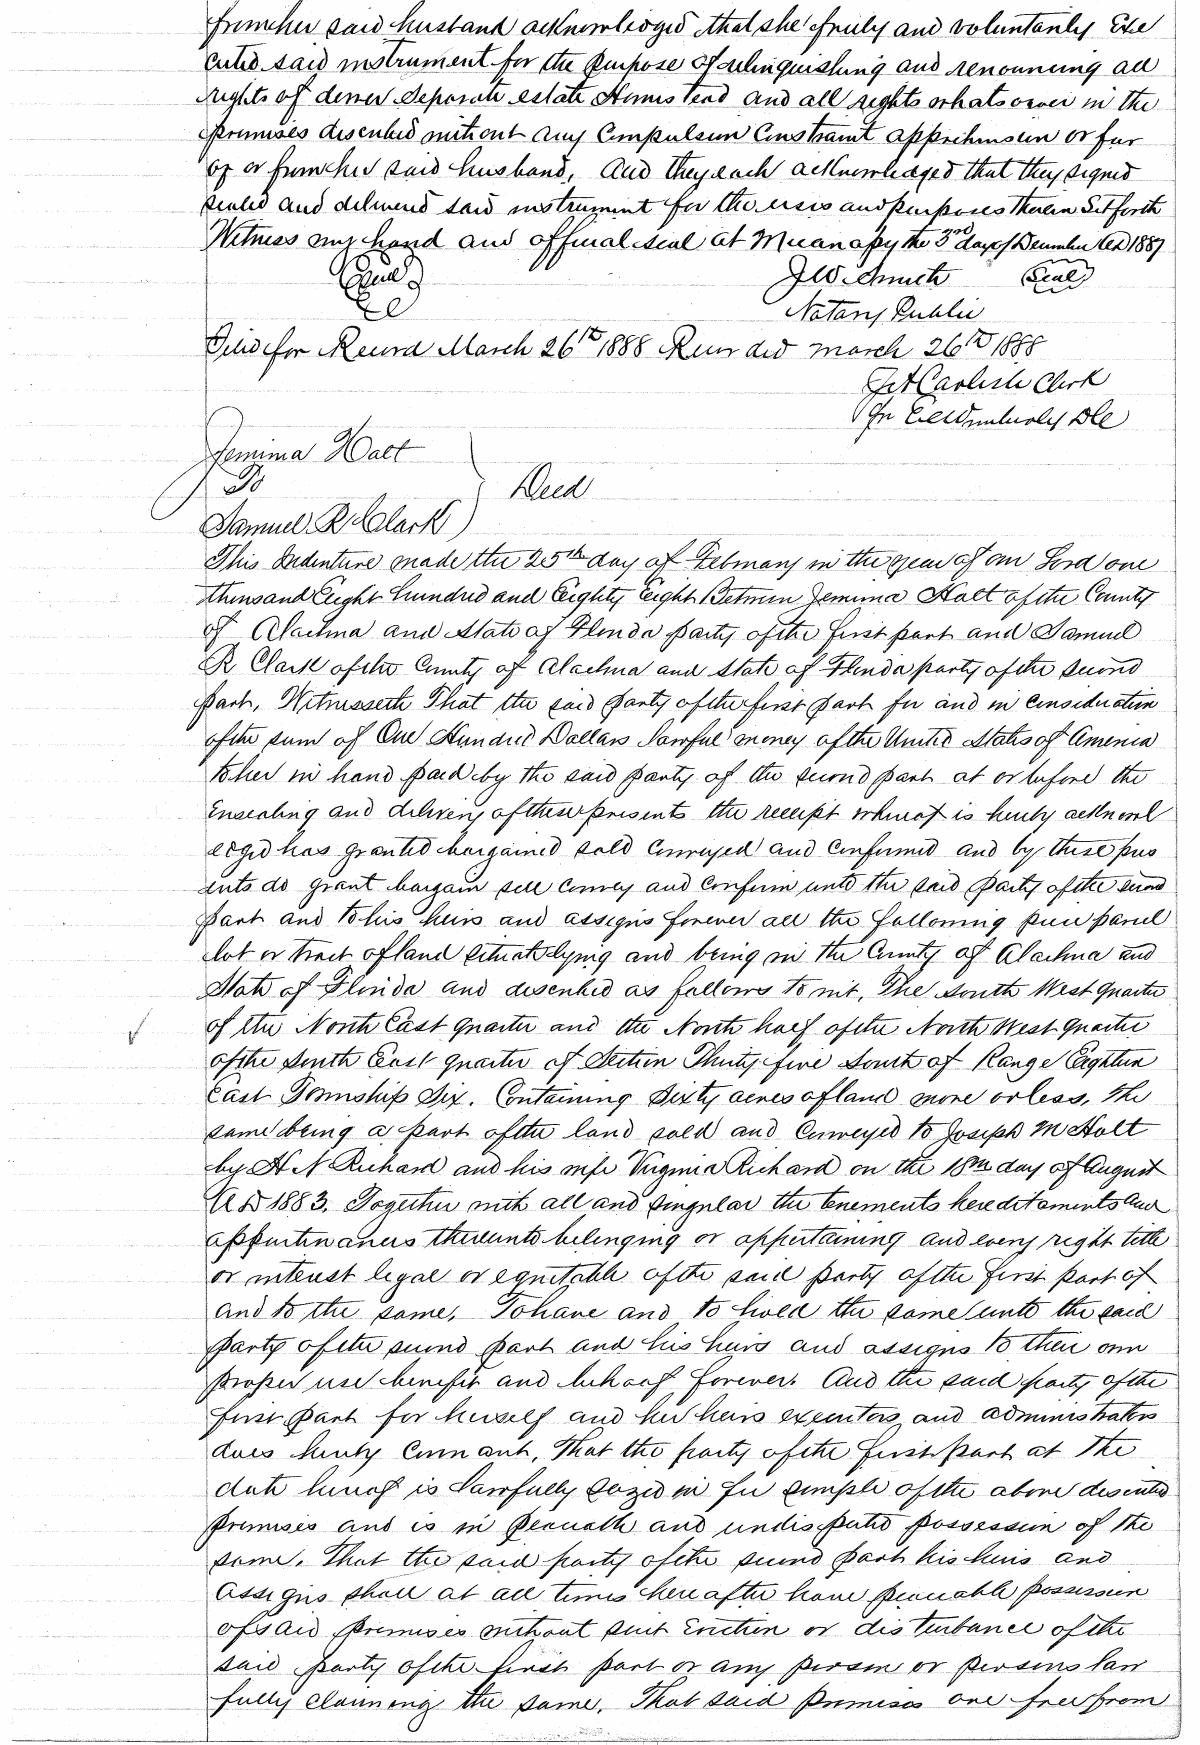 from her said husband acknowledged that she freely and voluntarily Exe
cuted said instrument for the purpose of relinquishing and renouncing all
rights of dower Separate estate Homestead and all rights whatsoever in the
premises described without any Compulsion Constraint apprehension or fear
of or from her said husband, And they each acknowledged that they signed
sealed and delivered said instrument for the uses and purposes therein Set forth
Witness my hand and official seal at Micanopy the 3rd day of December AD 1887
Seal J W Smith Seal
Notary Public
Filed for Record March 26th 1888 Recorded March 26th 1888
J A Carlisle Clerk
Pr DC
Jemima Holt
To Deed
Samuel R Clark
This Indenture made the 25th day of February in the year of our Lord one
thousand Eight hundred and Eighty Eight Between Jemima Holt of the County
of Alachua and State of Florida party of the first part and Samuel
R Clark of the County of Alachua and State of Florida party of the second
part, Witnesseth That the said party of the first part for and in consideration
of the sum of One Hundred Dollars lawful money of the United States of America
to her in hand paid by the said party of the second part at or before the
Ensealing and delivery of these presents the receipt whereof is hereby acknowl
edged has granted bargained sold conveyed and confirmed and by these pres
ents do grant bargain sell convey and confirm unto the said party of the second
part and to his heirs and assigns forever all the following piece parcel
lot or tract of land situate lying and being in the County of Alachua and
State of Florida and described as follows to wit, The South West quarter
of the North East quarter and the North half of the North West quarter
of the South East quarter of Section Thirty five South of Range Eighteen
East Township Six. Containing Sixty acres of land more or less, the
same being a part of the land sold and Conveyed to Joseph M Holt
by H N Richard and his wife Virginia Richard on the 18th day of August
AD 1883. Together with all and singular the tenements hereditaments and
appurtenances thereunto belonging or appertaining and every right title
or interest legal or equitable of the said party of the first part of
and to the same. To have and to hold the same unto the said
party of the second part and his heirs and assigns to their own
proper use benefit and behoof forever. And the said party of the
first part for herself and her heirs executors and administrators
does hereby Covenant, That the party of the first part at the
date hereof is lawfully sezed in fee simple of the above described
premises and is in peacable and undisputed possession of the
same. That the said party of the second part his heirs and
assigns shall at all times hereafter have peaceable possession
of said premises without suit Eviction or disturbance of the
said party of the first part or any person or persons law
fully claiming the same. That said premises are free from